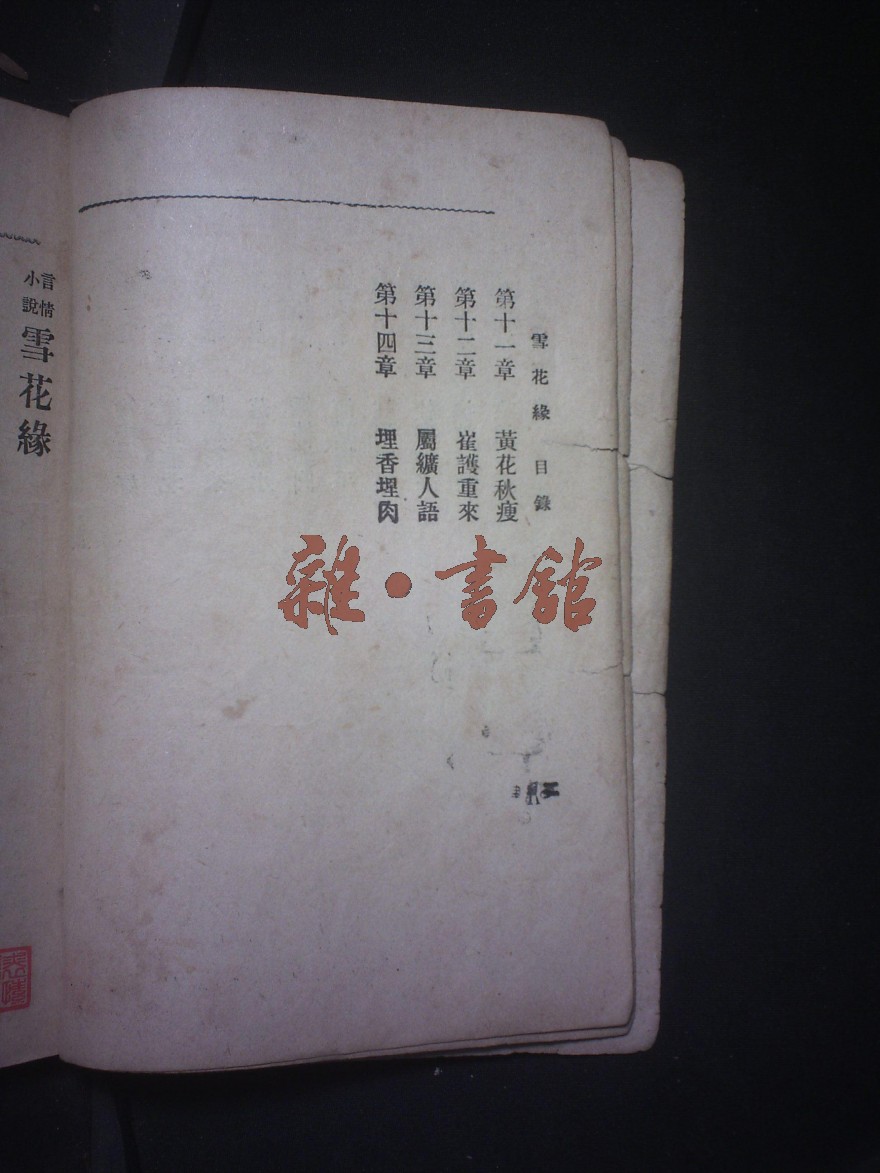 雪花緣 目錄
第十一章 黃花秋瘦
第十二章 崔護重來
第十三章 屬纊人語
第十四章 埋香埋肉
言情小說 雪花緣
雜・書館